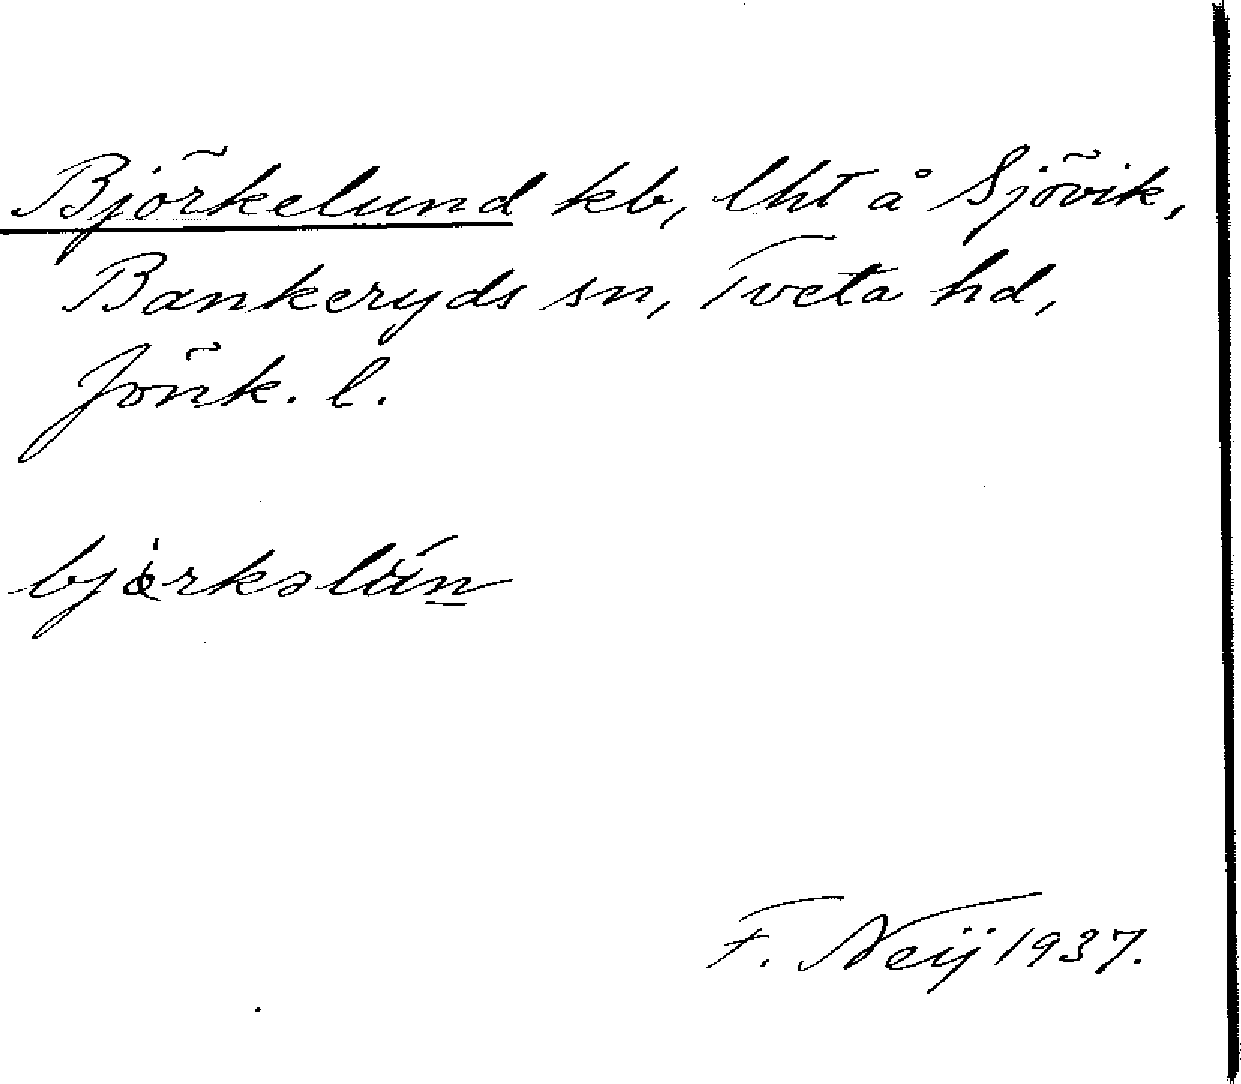 Björkelund kb, lht å Sjövik,
Bankeryds sn, Tveta hd,
Jönk. l.
F. Neij 1937.